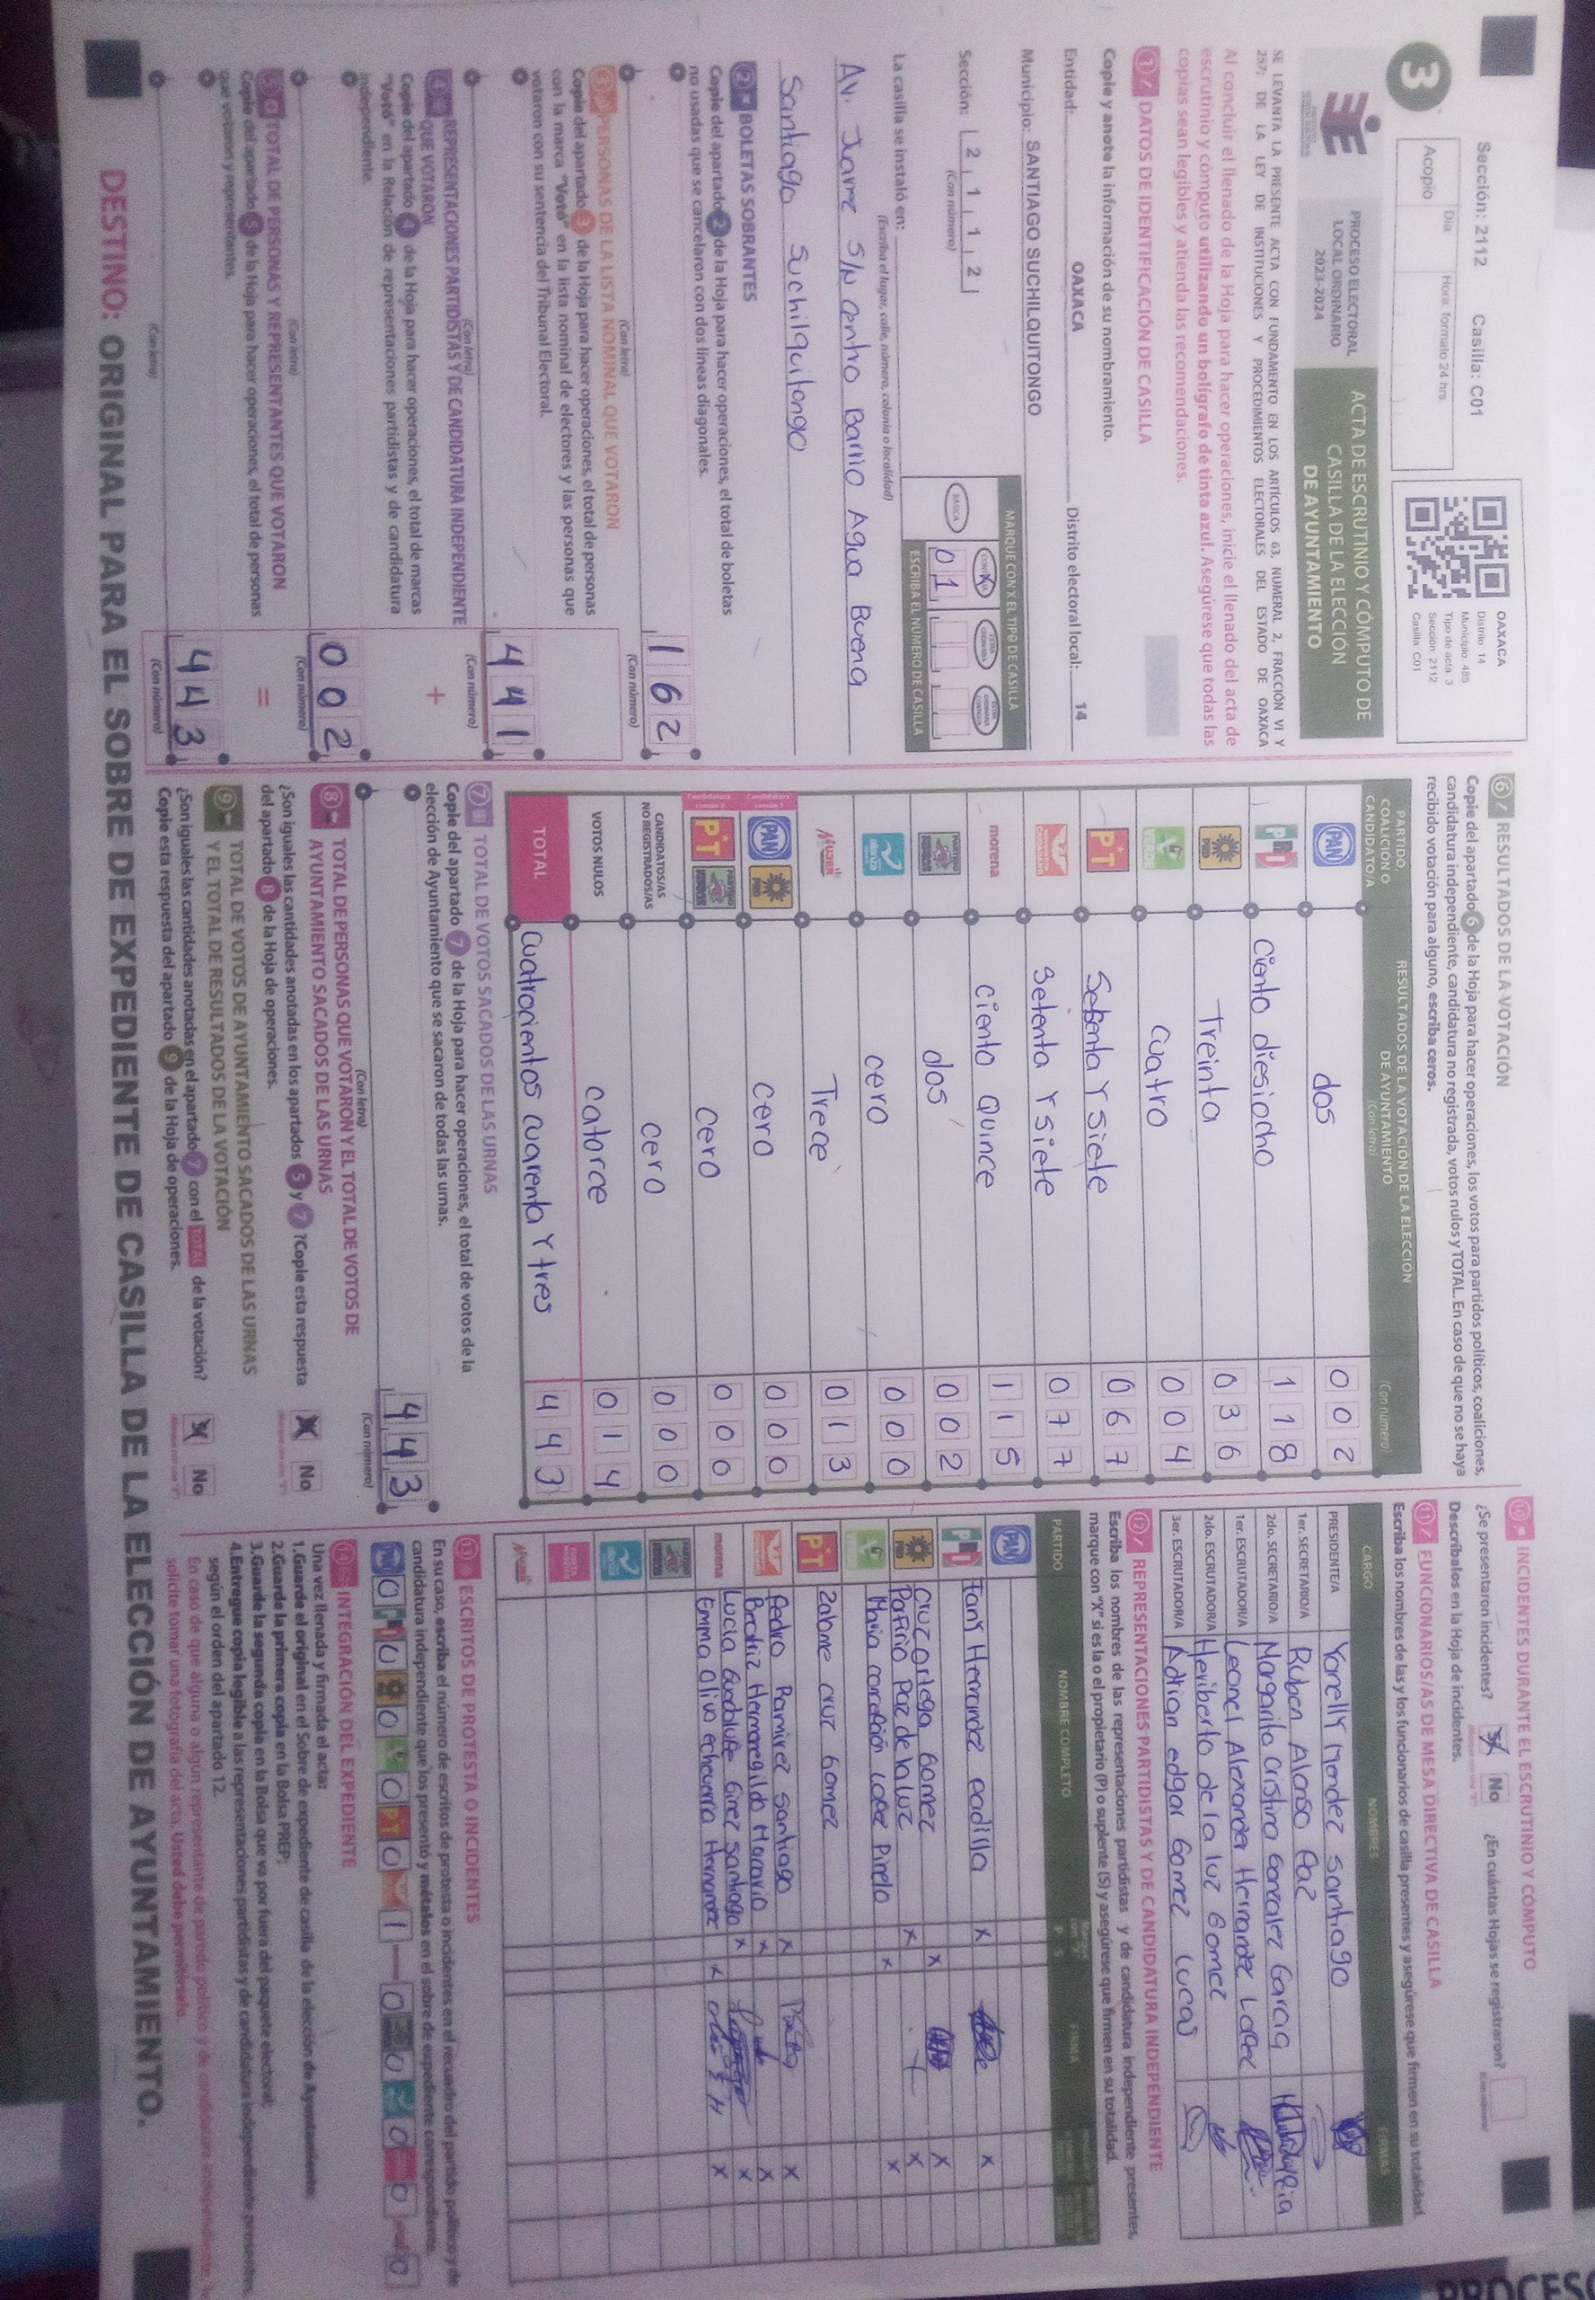 Sección: 2112 Casilla: C01
3
Acopio
Día
Hora: formato 24 hrs.
OAXACA
Distrito: 14
Municipio: 485
Tipo de acta: 3
Sección: 2112
Casilla: C01
PROCESO ELECTORAL
LOCAL ORDINARIO
2023-2024
ACTA DE ESCRUTINIO Y CÓMPUTO DE
CASILLA DE LA ELECCIÓN
DE AYUNTAMIENTO
SE LEVANTA LA PRESENTE ACTA CON FUNDAMENTO EN LOS ARTÍCULOS 63, NUMERAL 2, FRACCIÓN VI Y
257; DE LA LEY DE INSTITUCIONES Y PROCEDIMIENTOS ELECTORALES DEL ESTADO DE OAXACA
Al concluir el llenado de la Hoja para hacer operaciones, inicie el llenado del acta de
escrutinio y cómputo utilizando un bolígrafo de tinta azul. Asegúrese que todas las
copias sean legibles y atienda las recomendaciones.
1 DATOS DE IDENTIFICACIÓN DE CASILLA
Copie y anote la información de su nombramiento.
Entidad: OAXACA Distrito electoral local: 14
Municipio: SANTIAGO SUCHILQUITONGO
Sección: 2 1 1 2
(Con número)
MARQUE CON X EL TIPO DE CASILLA
BÁSICA
ESCRIBA EL NÚMERO DE CASILLA
0 1
La casilla se instaló en:
(Escriba el lugar, calle, número, colonia o localidad)
Av. Juarez S/N Centro Barrio Agua Buena
Santiago Suchilquitongo
2 BOLETAS SOBRANTES
Copie del apartado 2 de la Hoja para hacer operaciones, el total de boletas
no usadas que se cancelaron con dos líneas diagonales.
1 6 2
(Con letra) (Con número)
3 PERSONAS DE LA LISTA NOMINAL QUE VOTARON
Copie del apartado 3 de la Hoja para hacer operaciones, el total de personas
con la marca "Votó" en la lista nominal de electores y las personas que
votaron con su sentencia del Tribunal Electoral.
4 4 1
(Con letra) (Con número)
4 REPRESENTACIONES PARTIDISTAS Y DE CANDIDATURA INDEPENDIENTE
QUE VOTARON
+
Copie del apartado 4 de la Hoja para hacer operaciones, el total de marcas
"Votó" en la Relación de representaciones partidistas y de candidatura
independiente.
0 0 2
(Con letra) (Con número)
5 TOTAL DE PERSONAS Y REPRESENTANTES QUE VOTARON
=
Copie del apartado 5 de la Hoja para hacer operaciones, el total de personas
que votaron y representantes.
4 4 3
(Con letra) (Con número)
6 RESULTADOS DE LA VOTACIÓN
Copie del apartado 6 de la Hoja para hacer operaciones, los votos para partidos políticos, coaliciones,
candidatura independiente, candidatura no registrada, votos nulos y TOTAL. En caso de que no se haya
recibido votación para alguno, escriba ceros.
PARTIDO,
COALICIÓN O
CANDIDATO/A
RESULTADOS DE LA VOTACIÓN DE LA ELECCIÓN
DE AYUNTAMIENTO
(Con letra)
(Con número)
PAN dos 0 0 2
PRI Ciento diesiocho 1 1 8
PRD Treinta 0 3 6
VERDE cuatro 0 0 4
PT Sesenta Y Siete 0 6 7
Setenta Y siete 0 7 7
morena ciento Quince 1 1 5
dos 0 0 2
alianza cero 0 0 0
Mujer Trece 0 1 3
PAN PRD cero 0 0 0
PT cero 0 0 0
CANDIDATOS/AS
NO REGISTRADOS/AS cero 0 0 0
VOTOS NULOS catorce 0 1 4
TOTAL cuatrocientos cuarenta Y tres 4 4 3
7 TOTAL DE VOTOS SACADOS DE LAS URNAS
Copie del apartado 7 de la Hoja para hacer operaciones, el total de votos de la
elección de Ayuntamiento que se sacaron de todas las urnas.
4 4 3
(Con letra) (Con número)
8 TOTAL DE PERSONAS QUE VOTARON Y EL TOTAL DE VOTOS DE
AYUNTAMIENTO SACADOS DE LAS URNAS
¿Son iguales las cantidades anotadas en los apartados 5 y 7 ?Copie esta respuesta
del apartado 8 de la Hoja de operaciones.
X No
9 TOTAL DE VOTOS DE AYUNTAMIENTO SACADOS DE LAS URNAS
Y EL TOTAL DE RESULTADOS DE LA VOTACIÓN
¿Son iguales las cantidades anotadas en el apartado 7 con el TOTAL de la votación?
Copie esta respuesta del apartado 9 de la Hoja de operaciones.
X No
10 INCIDENTES DURANTE EL ESCRUTINIO Y CÓMPUTO
¿Se presentaron incidentes? X No ¿En cuántas Hojas se registraron?
Descríbalos en la Hoja de incidentes.
11 FUNCIONARIOS/AS DE MESA DIRECTIVA DE CASILLA
Escriba los nombres de las y los funcionarios de casilla presentes y asegúrese que firmen en su totalidad.
CARGO NOMBRES FIRMAS
PRESIDENTE/A Yanelly Mendez Santiago
1er. SECRETARIO/A Ruben Alonso Paz
2do. SECRETARIO/A Margarita Cristina Gonzalez Garcia
1er. ESCRUTADOR/A Leonel Alexander Hernandez Lopez
2do. ESCRUTADOR/A Heriberto de la luz Gomez
3er. ESCRUTADOR/A Adrian edgar Gomez Lucas
12 REPRESENTACIONES PARTIDISTAS Y DE CANDIDATURA INDEPENDIENTE
Escriba los nombres de las representaciones partidistas y de candidatura independiente presentes,
marque con "X" si es la o el propietario (P) o suplente (S) y asegúrese que firmen en su totalidad.
PARTIDO NOMBRE COMPLETO P S FIRMA
PAN
PRI Hernandez Padilla X X
Cruz Ortega Gomez X X
PRD Paz de la luz X X
Maria Lopez Pinelo X X
PT Zabme cruz Gomez
Pedro Ramirez Santiago X X
Beatriz Hermenegildo Macario X X
morena Lucia Guadalupe Girez Santiago X X
Emma Oliva echeverria Hernandez X X
Mujer
13 ESCRITOS DE PROTESTA O INCIDENTES
En su caso, escriba el número de escritos de protesta o incidentes en el recuadro del partido político y de
candidatura independiente que los presentó y métalos en el sobre de expediente correspondiente.
0 0 0 0 0 1 0 0 0 0 0
14 INTEGRACIÓN DEL EXPEDIENTE
Una vez llenada y firmada el acta:
1.Guarde el original en el Sobre de expediente de casilla de la elección de Ayuntamiento;
2.Guarde la primera copia en la Bolsa PREP;
3.Guarde la segunda copia en la Bolsa que va por fuera del paquete electoral;
4.Entregue copia legible a las representaciones partidistas y de candidatura independiente presentes,
según el orden del apartado 12.
En caso de que alguna o algún representante de partido político y de candidatura independiente,
solicite tomar una fotografía del acta, Usted debe permitírselo.
DESTINO: ORIGINAL PARA EL SOBRE DE EXPEDIENTE DE CASILLA DE LA ELECCIÓN DE AYUNTAMIENTO.
PROCESO